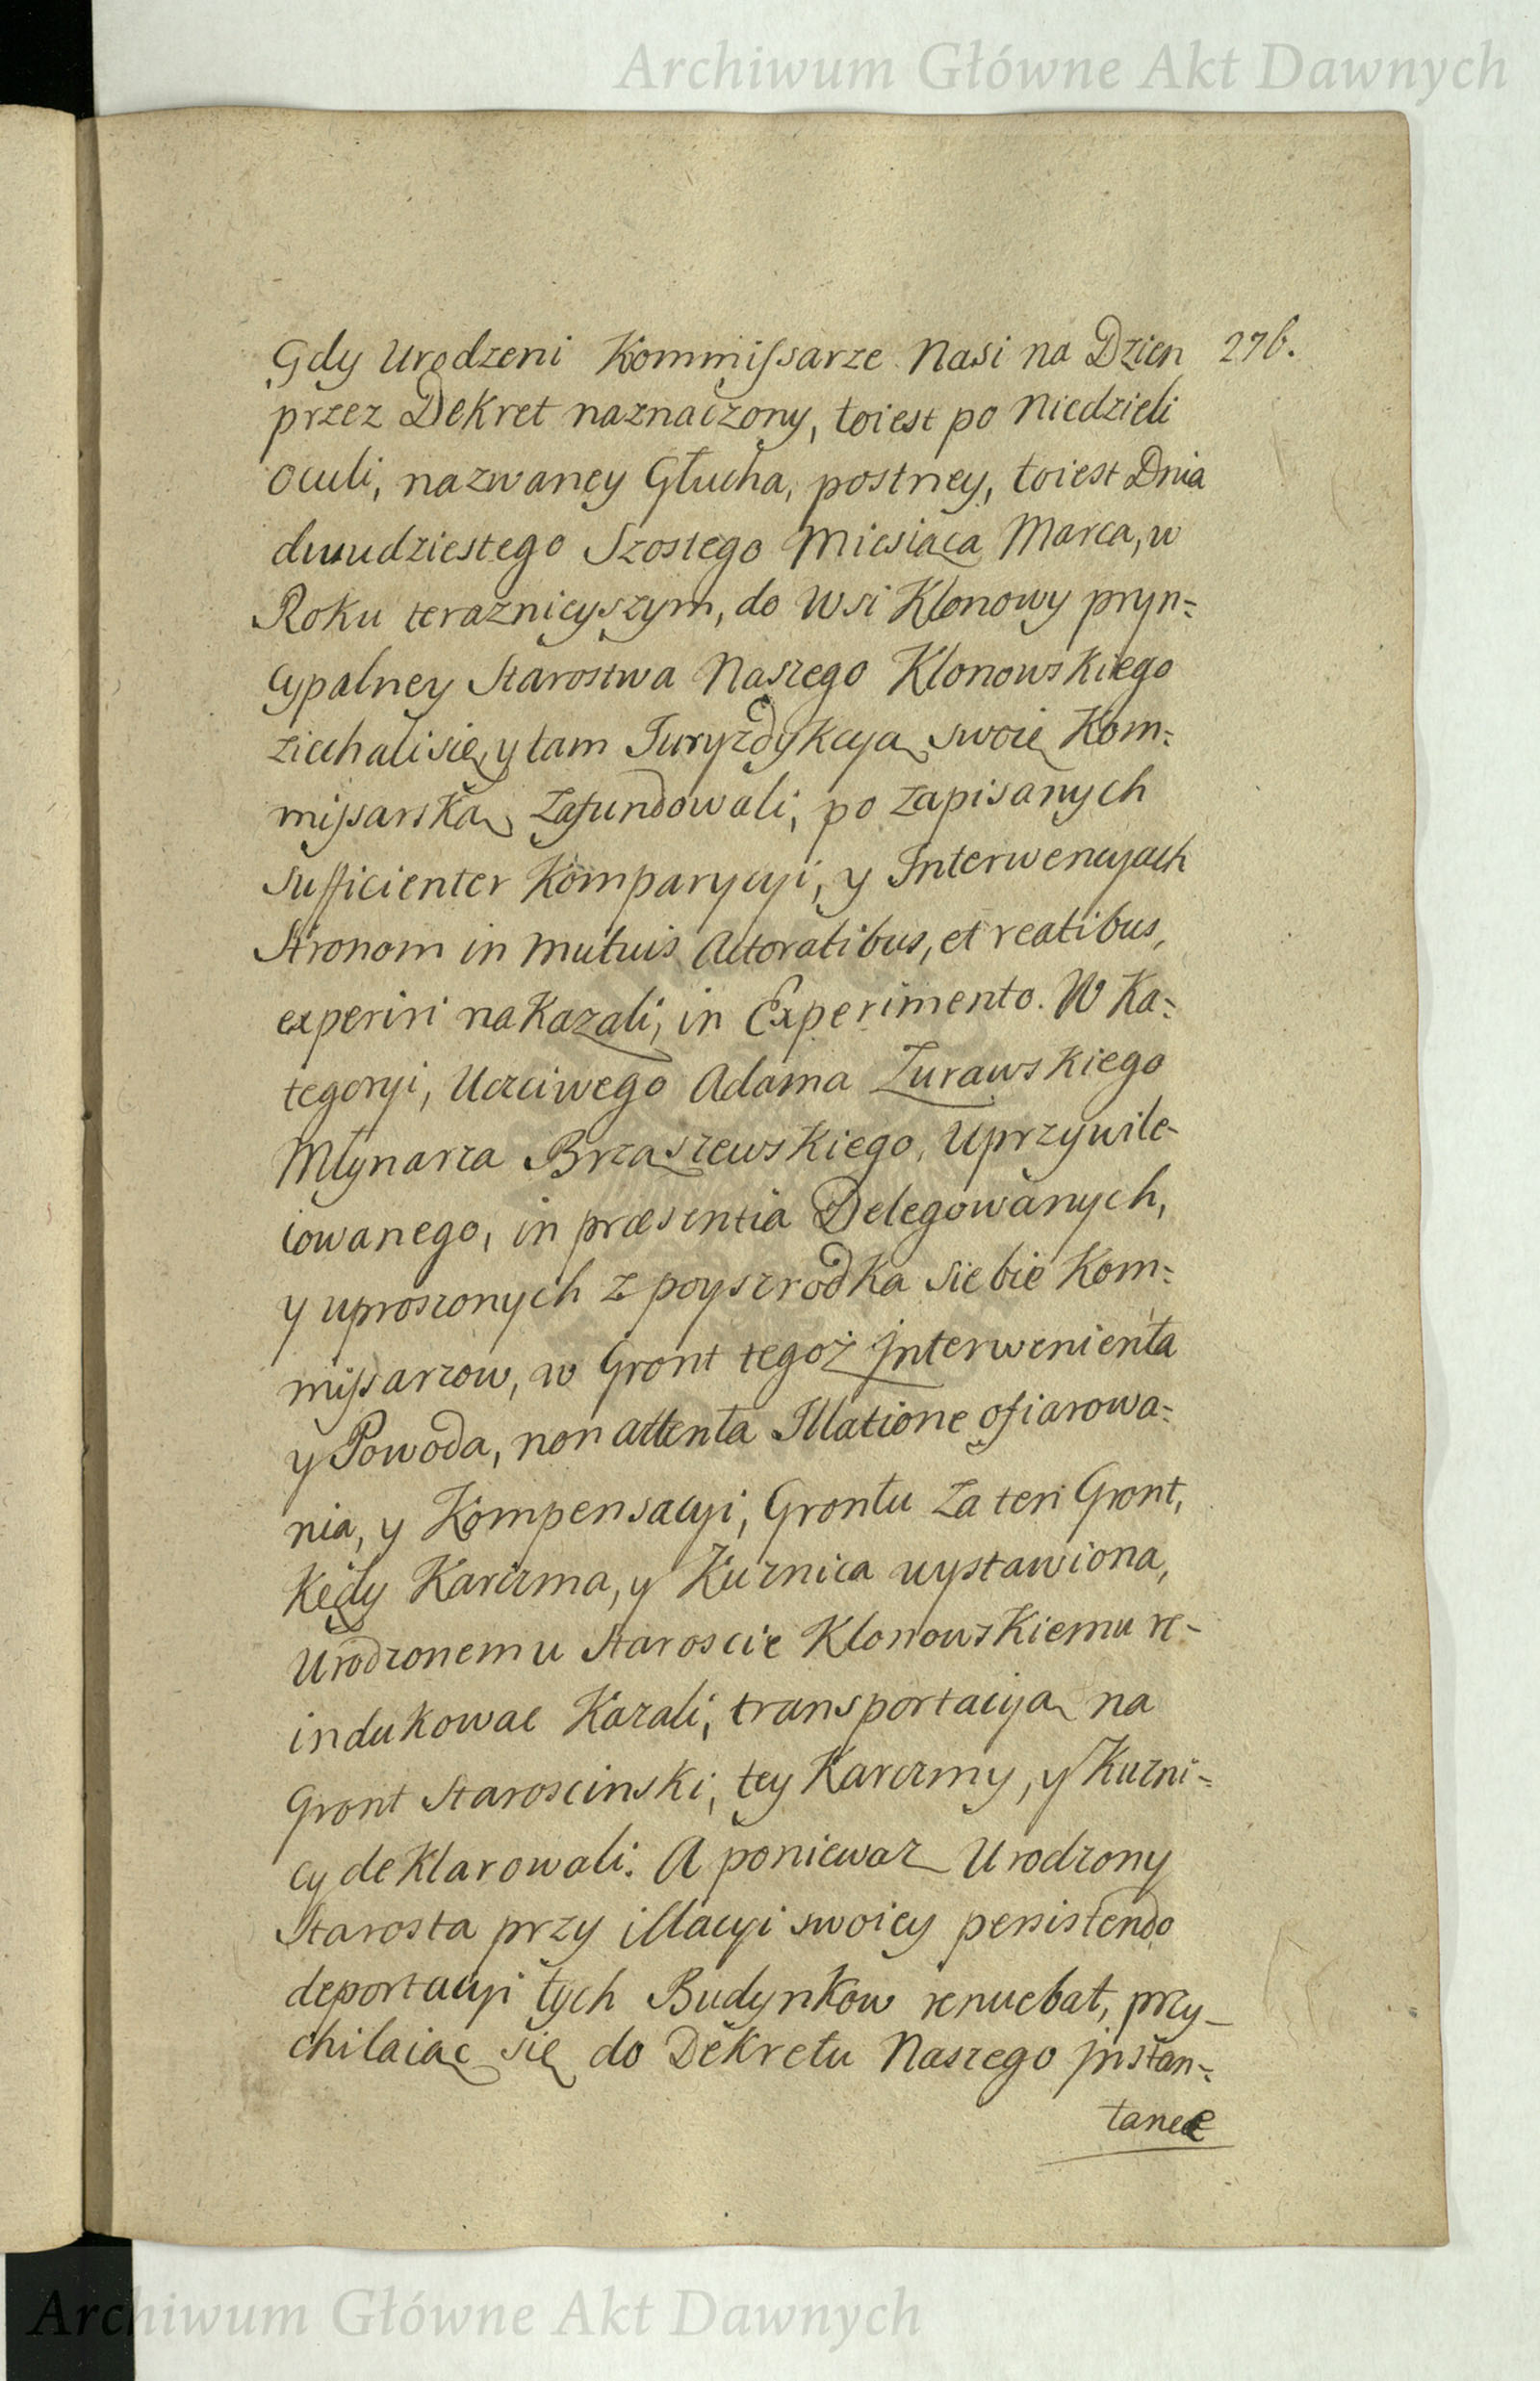 Archiwum Główne Akt Dawnych
276.
Gdy Urodzeni Kommissarze Nasi na Dzien
przez Dekret naznaczony, toiest po Niedzieli
Oculi, nazwaney Głucha, postney, toiest Dnia
dwudziestego Szostego Miesiąca Marca, w
Roku teraznieyszym, do Wsi Klonowy pryn=
cypalney Starostwa Naszego Klonowskiego
ziechali się, y tam Juryzdykcyą swoię Kom=
missarską zafundowali, po zapisanych
sufficienter Komparycyi, y Interwencyach
Stronom in mutuis Actoratibus, et reatibus,
experiri nakazali, in Experimento. W Ka=
tegoryi, Uczciwego Adama Zurawskiego
Młynarza Brzaszewskiego, Uprzywile-
iowanego, in præsentia Delegowanych,
y uproszonych z poyszrodka siebie Kom=
missarzow, w Gront tegoż Interwenienta
y Powoda, non attenta Illatione ofiarowa=
nia, y Kompensacyi, Grontu za ten Gront,
kędy Karczma, y Kuznica wystawiona,
Urodzonemu Staroscie Klonowskiemu re-
indukowac Kazali, transportacyą na
Gront Staroscinski, tey Karczmy, y Kuzni=
cy deklarowali. A poniewaz Urodzony
Starosta przy illacyi swoiey persistendo
deportacyi tych Budynkow renuebat, przy-
chilaiąc się do Dekretu Naszego jnstan=
taneæ
Archiwum Główne Akt Dawnych